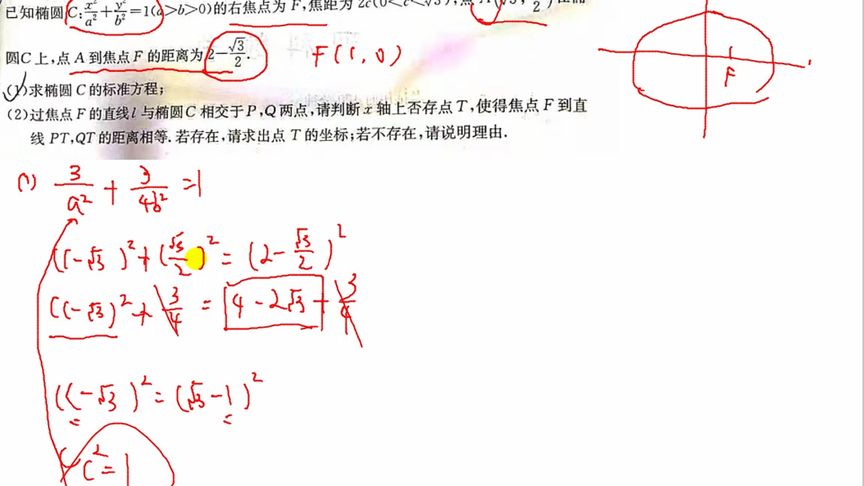 已知椭圆C:x²/a²+y²/b²=1(a>b>0)的右焦点为F,焦距为2c(0<c<√3),点A(√3,√3/2)在椭
圆C上,点A到焦点F的距离为2-√3/2.
F(1,0)
F
(1)求椭圆C的标准方程;
(2)过焦点F的直线l与椭圆C相交于P,Q两点,请判断x轴上否存点T,使得焦点F到直
线PT,QT的距离相等.若存在,请求出点T的坐标;若不存在,请说明理由.
(1) 3/a² + 3/4b² =1
(c-√3)²+(√3/2)²=(2-√3/2)²
(c-√3)²+3/4=4-2√3+3/4
(c-√3)²=(√3-1)²
c²=1